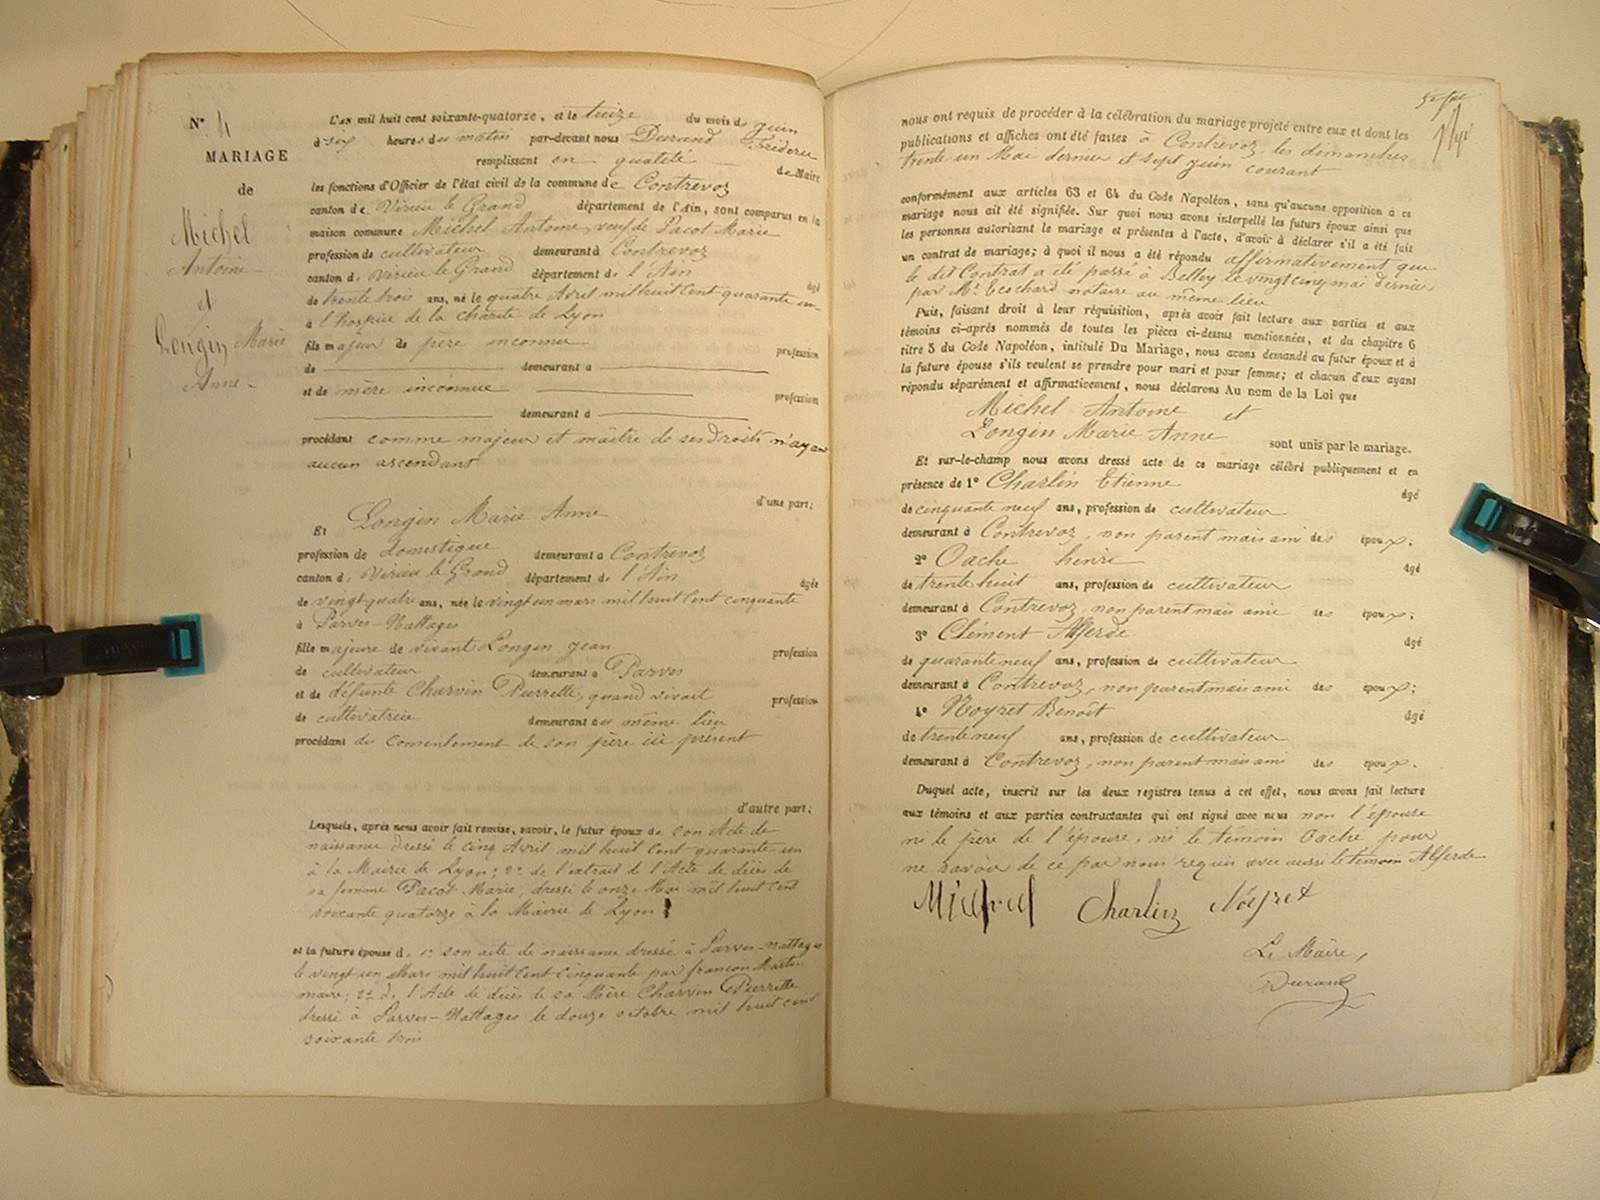 N° 4
MARIAGE
de
Michel
Antoine
et
Longin Marie
Anne
L'AN mil huit cent soixante-quatorze, et le treize du mois de juin
à six heures du matin par-devant nous Durand Frédéric
remplissant en qualité de Maire
les fonctions d'Officier de l'état civil de la commune de Contrevoz
canton de Virieu le Grand département de l'Ain, sont comparus en la
maison commune Michel Antoine, veuf de Pacot Marie
profession de cultivateur demeurant à Contrevoz
canton de Virieu le Grand département de l'Ain âgé
de trente trois ans, né le quatre Avril mil huit cent quarante un
à l'hospice de la charité de Lyon
fils majeur de père inconnu profession
de demeurant à
et de mère inconnue profession
demeurant à
procédant comme majeur et maître de ses droits n'ayant
aucun ascendant
d'une part;
Et Longin Marie Anne
profession de domestique demeurant à Contrevoz
canton de Virieu le Grand département de l'Ain âgée
de vingt quatre ans, née le vingt un mars mil huit cent cinquante
à Parves-Nattages
fille majeure de vivant Longin Jean profession
de cultivateur demeurant à Parves
et de défunte Charvin Pierrette, quand vivait profession
de cultivatrice demeurant au même lieu
procédant du consentement de son père ici présent
d'autre part;
Lesquels, après nous avoir fait remise, savoir, le futur époux de son Acte de
naissance dressé le cinq Avril mil huit cent quarante un
à la Mairie de Lyon; 2° de l'extrait de l'Acte de décès de
sa femme Pacot Marie, dressé le onze Mai mil huit cent
soixante quatorze à la Mairie de Lyon
et la future épouse d. 1° son acte de naissance dressé à Parves-Nattages
le vingt un Mars mil huit cent cinquante par françon Martin
maire; 2° de l'Acte de décès de sa Mère Charvin Pierrette
dressé à Parves-Nattages le douze octobre mil huit cent
soixante trois
nous ont requis de procéder à la célébration du mariage projeté entre eux et dont les
publications et affiches ont été faites à Contrevoz les dimanches
trente un Mai dernier et sept juin courant
conformément aux articles 63 et 64 du Code Napoléon, sans qu'aucune opposition à ce
mariage nous ait été signifiée. Sur quoi nous avons interpellé les futurs époux ainsi que
les personnes autorisant le mariage et présentes à l'acte, d'avoir à déclarer s'il a été fait
un contrat de mariage; à quoi il nous a été répondu affirmativement que
le dit Contrat a été passé à Belley le vingt cinq mai dernier
par Me Ecochard notaire au même lieu
Puis, faisant droit à leur réquisition, après avoir fait lecture aux parties et aux
témoins ci-après nommés de toutes les pièces ci-dessus mentionnées, et du chapitre 6
titre 5 du Code Napoléon, intitulé Du Mariage, nous avons demandé au futur époux et à
la future épouse s'ils veulent se prendre pour mari et pour femme; et chacun d'eux ayant
répondu séparément et affirmativement, nous déclarons Au nom de la Loi que
Michel Antoine et
Longin Marie Anne sont unis par le mariage.
Et sur-le-champ nous avons dressé acte de ce mariage célébré publiquement et en
présence de 1° Charlin Etienne âgé
de cinquante neuf ans, profession de cultivateur
demeurant à Contrevoz, non parent mais ami des époux;
2° Oache henri âgé
de trente huit ans, profession de cultivateur
demeurant à Contrevoz non parent mais ami des époux;
3° Clément Alferde âgé
de quarante neuf ans, profession de cultivateur
demeurant à Contrevoz, non parent mais ami des époux;
4° Noyret Benoît âgé
de trente neuf ans, profession de cultivateur
demeurant à Contrevoz, non parent mais ami des époux.
Duquel acte, inscrit sur les deux registres tenus à cet effet, nous avons fait lecture
aux témoins et aux parties contractantes qui ont signé avec nous non l'épouse
ni le père de l'épouse, ni le témoin Oache pour
ne savoir de ce par nous requis avec aussi le témoin Alferde
Michel Charlin Noyret
Le Maire,
Durand